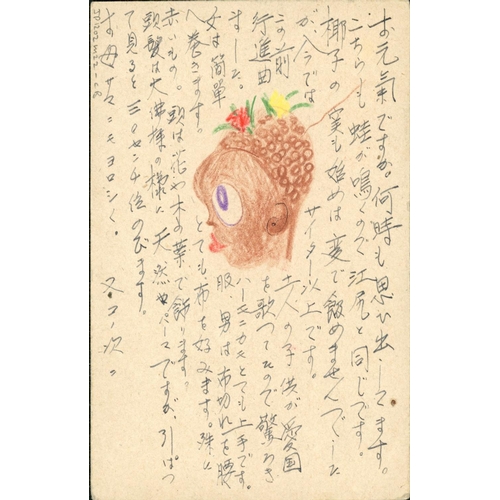 お元気ですか。何時も思ひ出してます。
こちらも蛙が鳴くので江尻と同じです。
椰子の実も始めは変で飲めませんでした
が今ではサイダー以上です。
この前土人の子供が愛国
行進曲を歌つてたので驚ろき
ました。ハーモニカもとても上手です。
女は簡単服、男は布切れを腰
へ巻きます。とても布を好みます。殊に
赤いもの。頭は花や木の葉で飾ります。
頭髪は大佛様の様に天然パーマですが、引ぱつ
て見ると三〇センチ位のびます。
お母サマニモヨロシく。